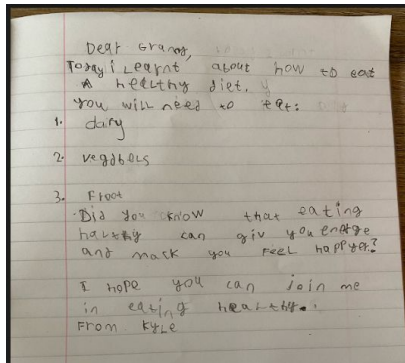 Dear Grany,
Today i Learnt about how to eat
A heLthy diet. y
you will need to eat:
1. dairy
2. veggbels
3. Froot
·Did you know that eating
halthy can giv you energe
and mack you FeeL happyer?
I hope you can join me
in eating healthy.
From kyLe